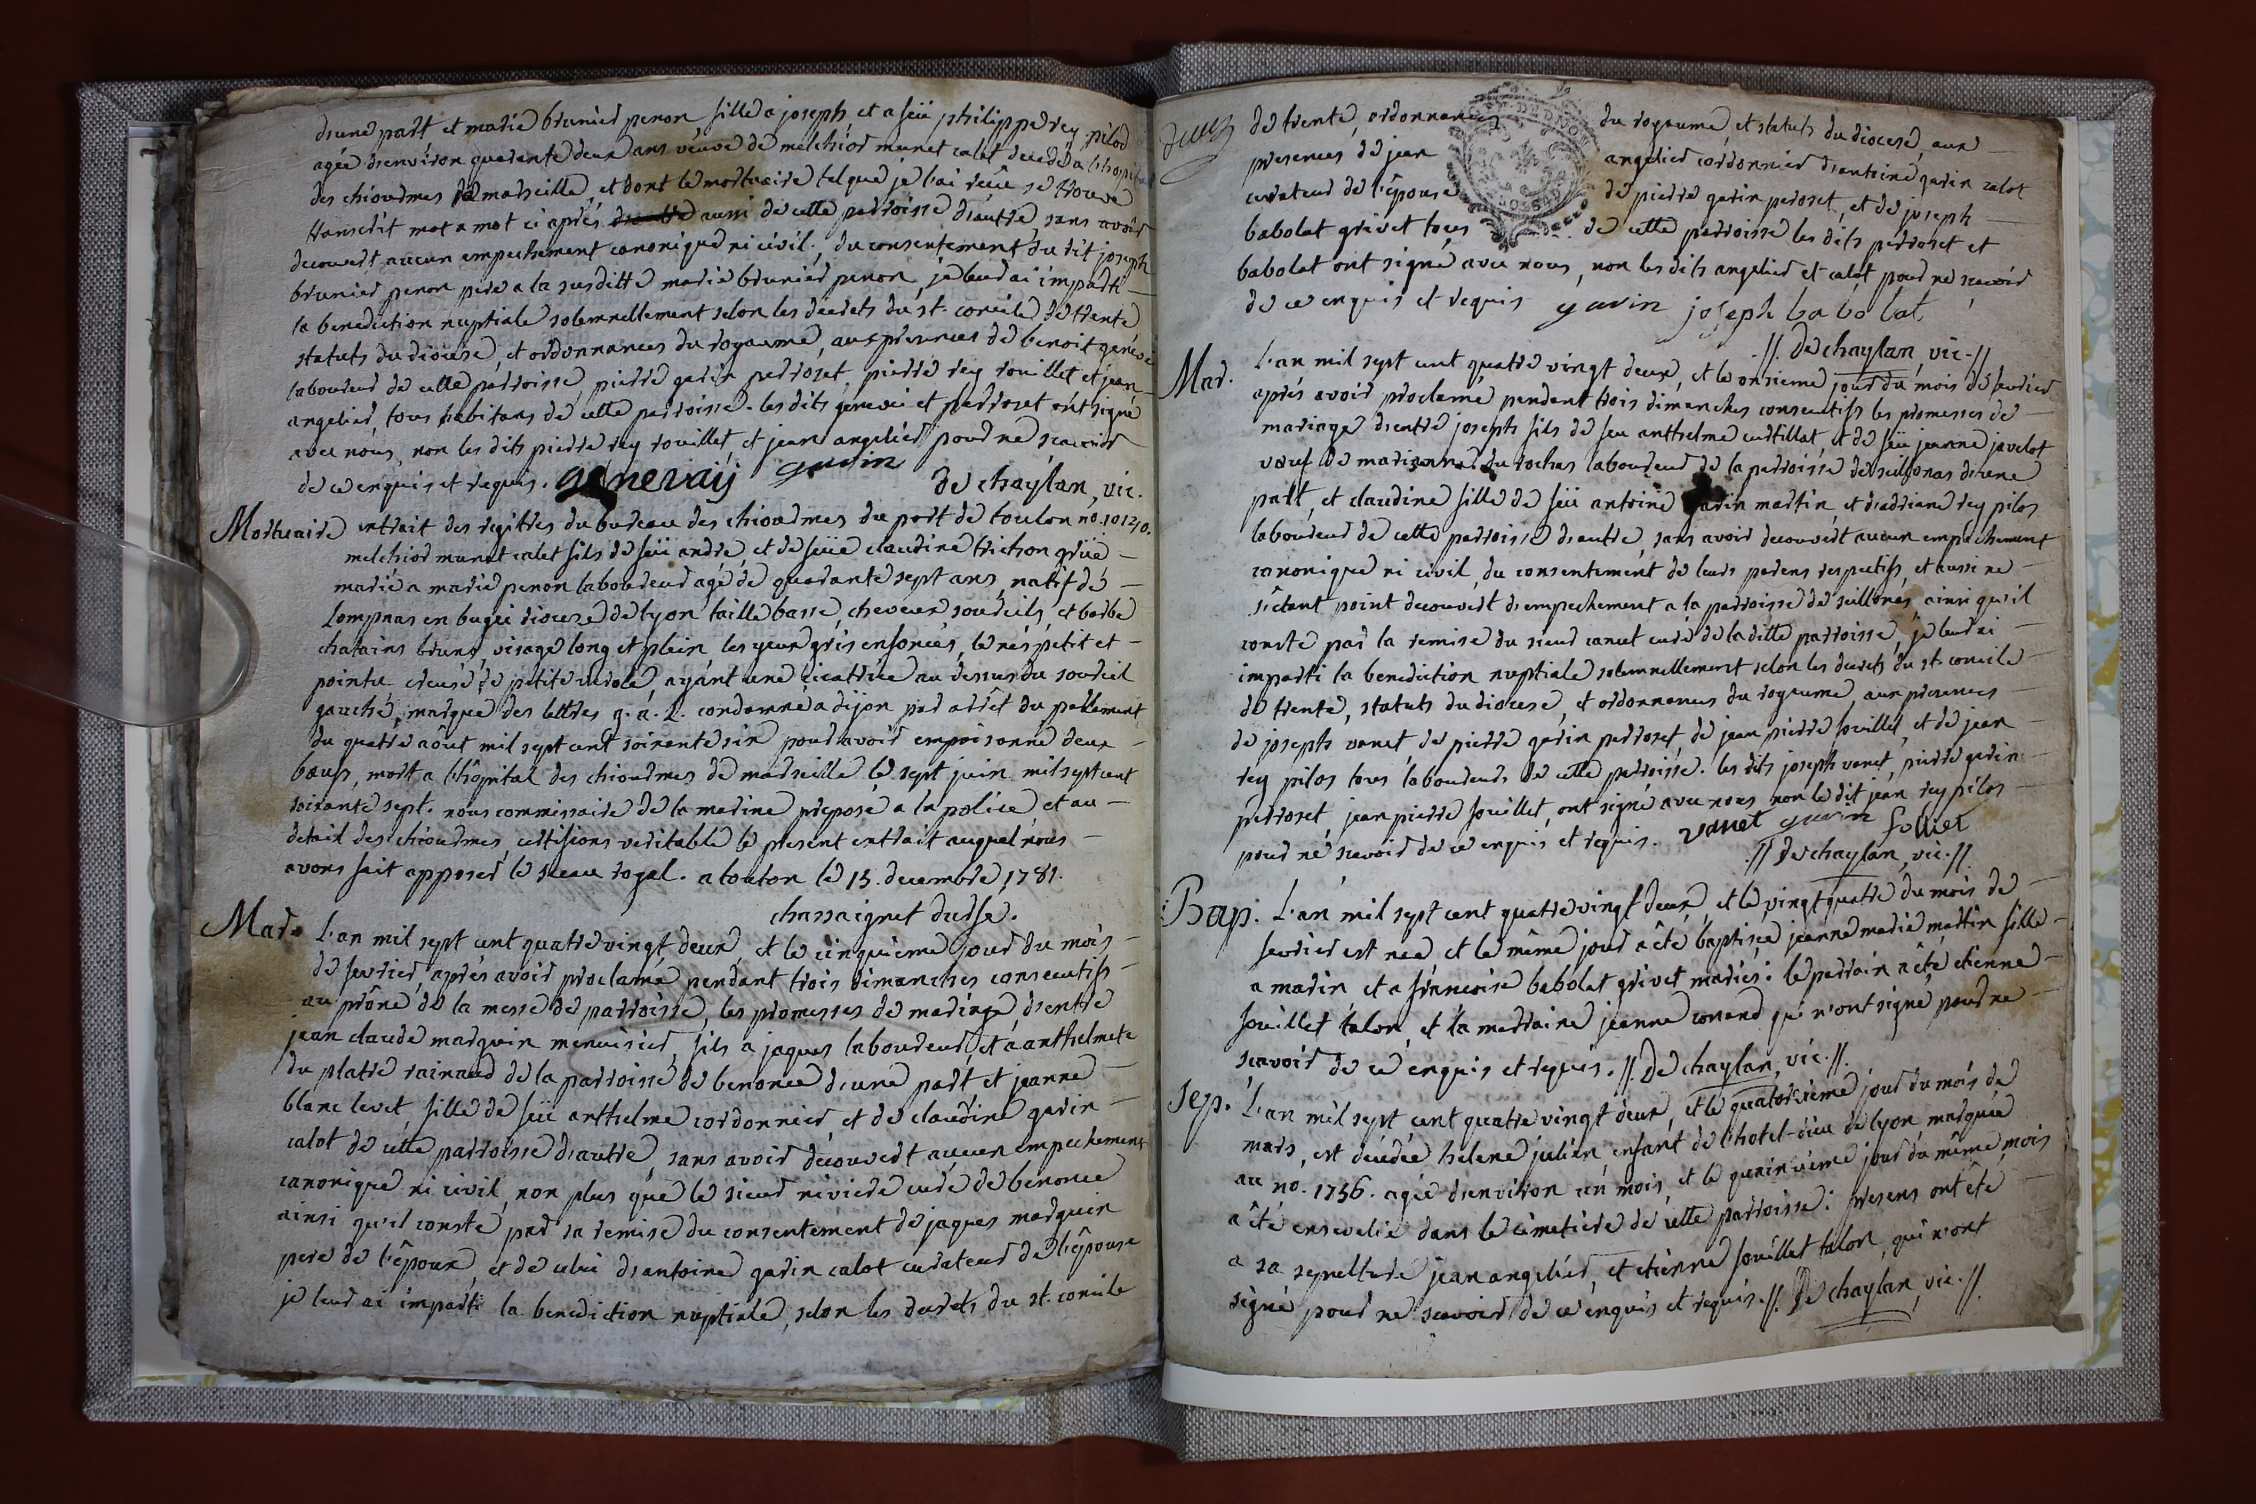 d'une part et marie brunier penon fille a joseph et a feüe philippe rey pilod
agée d'environ quarente deux ans veuve de melchior munet calet decedé a l'hopital
des chiourmes de marseille, et dont le mortuaire tel que je l'ai reçu se trouve
transcrit mot a mot ci après aussi de cette parroisse d'autre, sans avoir
decouvert aucun empechement canonique ni civil; du consentement du dit joseph
brunier penon pere a la susditte marie brunier penon, je leur ai imparti
la benediction nuptiale solemnellement selon les decrets du st. concile de trente
statuts du diocese, et ordonnances du royaume, aux presences de benoit genevai
laboureur de cette parroisse, pierre garin perroset, pierre rey rouillet et jean
angelier, tous habitans de cette parroisse. les dits genevai et perroset ont signé
avec nous, non les dits pierre rey rouillet et jean angelier pour ne scavoir
de ce enquis et requis. genevaij garin
de chaylan, vic.
Mortuaire extrait des regîtres du bureau des chiourmes du port de toulon no. 10120.
melchior munet calet fils de feü andré et de feüe claudine trichon grüe
marié a marie penon laboureur agé de quarante sept ans, natif de
Lompnas en bugei diocese de lyon taille basse, cheveux sourcils, et barbe
chatains bruns, visage long et plein les yeux gris enfoncés, le nés petit et
pointu creusé de petite verole, ayant une cicatrice au dessus du sourcil
gauche, marque des lettres g. a. l. condamné a dijon par arrêt du parlement
du quatre aôut mil sept cent soixante six pour avoir empoisonné deux
bœufs, mort a l'hôpital des chiourmes de marseille le sept juin mil sept cent
soixante sept. nous commissaire de la marine preposé a la police et au
detail des chiourmes, certifions veritable le present extrait auquel nous
avons fait apposer le sceau royal. a toulon le 13. decembre 1781.
chassaignet
Mar. L'an mil sept cent quatre vingt deux, et le cinquieme jour du mois
de fevrier, après avoir proclamé pendant trois dimanches consecutifs
au prône de la messe de parroisse, les promesses de mariage d'entre
jean claude marguin menuisier, fils a jaques laboureur et a anthelmete
du platre rainaud de la parroisse de benonce d'une part et jeanne
blanc levet, fille de feü anthelme cordonnier, et de claudine garin
calot de cette parroisse d'autre, sans avoir decouvert aucun empechement
canonique ni civil, non plus que le sieur riviere curé de benonce
ainsi qu'il conste par sa remise du consentement de jaques marguin
pere de l'époux, et de celui d'antoine garin calot curateur de l'épouse
je leur ai imparti la benediction nuptiale, selon les decrets du st. concile
deux
de trente, ordonnances du royaume, et statuts du diocese, aux
presences de jean angelier cordonnier d'antoine garin calot
curateur de l'épouse de pierre garin peroset, et de joseph
babolat grivet tous de cette parroisse les dits perroset et
babolat ont signé avec nous, non les dits angelier et calot pour ne scavoir
de ce enquis et requis garin joseph babolat
.//. De chaylan, vic.//
Mar. L'an mil sept cent quatre vingt deux, et le onsieme jour du mois de fevrier
après avoir proclamé pendant trois dimanches consecutifs les promesses de
mariage d'entre joseph fils de feu anthelme curtillat et de feüe jeanne javelot
veuf de marianne du rochas laboureur de la parroisse de seillonas d'une
part, et claudine fille de feü antoine garin martin, et d'adriane rey pilos
laboureur de cette parroisse d'autre, sans avoir decouvert aucun empechement
canonique ni civil, du consentement de leurs parens respectifs, et aussi ne
s'étant point decouvert d'empechement a la parroisse de seillonas ainsi qu'il
conste par la remise du sieur canet curé de la ditte parroisse, je leur ai
imparti la benediction nuptiale solemnellement selon les decrets du st. concile
de trente, statuts du diocese, et ordonnances du royaume, aux presences
de joseph vanet, de pierre garin perroset, de jean pierre fouillet, et de jean
rey pilos tous laboureurs de cette parroisse. les dits joseph vanet, pierre garin
perroset, jean pierre fouillet, ont signé avec nous non le dit jean rey pilos
pour ne scavoir de ce enquis et requis. vanet garin folliet
.// De chaylan, vic.//.
Bap. L'an mil sept cent quatre vingt deux, et le vingt quatre du mois de
fevrier est née et le même jour a été baptisée jeanne marie martin fille
a marin et a francoise babolat grivet mariés: le parrain a été etienne
fouillet talon, et la marraine jeanne conand qui n'ont signé pour ne
scavoir de ce enquis et requis. //. De chaylan, vic.//.
Sep. L'an mil sept cent quatre vingt deux, et le quatorzieme jour du mois de
mars, est décédée helene julien, enfant de l'hotel-dieu de lyon marquée
au no. 1756. agée d'environ un mois, et le quinzieme jour du même mois
a été ensevelie dans le cimetiere de cette parroisse: presens ont été
a sa sepulture jean angelier, et etienne fouillet talon, qui n'ont
signé pour ne scavoir de ce enquis et requis.//. De chaylan, vic.//.